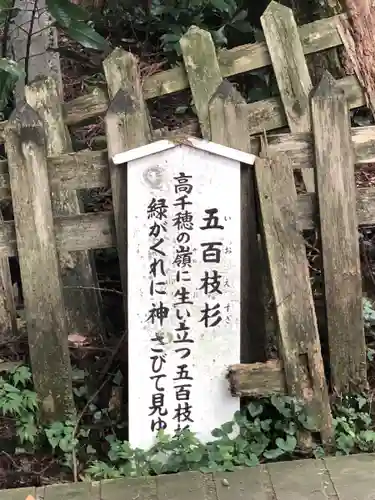 五百枝杉
いおえすぎ
高千穂の嶺に生い立つ五百枝杉
緑がくれに神さびて見ゆ